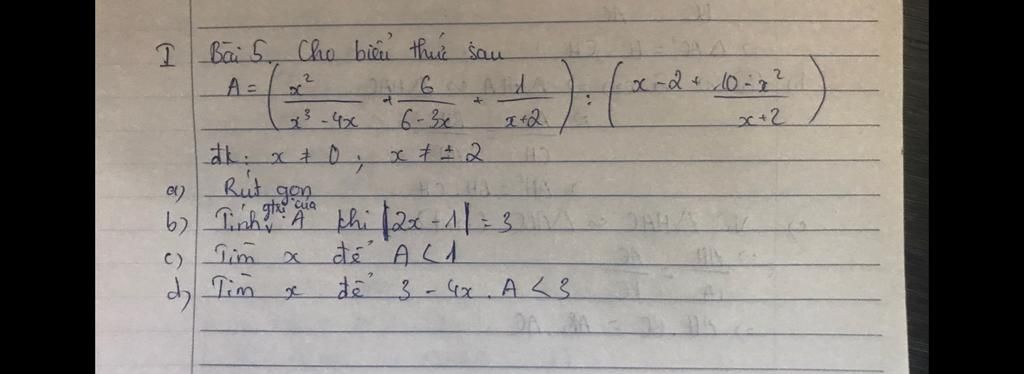 I Bài 5. Cho biểu thức sau
A = ( x²/(x³ - 4x) + 6/(6 - 3x) + 1/(x+2) ) : ( x - 2 + (10 - x²)/(x+2) )
đk: x ≠ 0 ; x ≠ ± 2
a) Rút gọn
b) Tính gtrị của A khi |2x - 1| = 3
c) Tìm x để A < 1
d) Tìm x để 3 - 4x . A < 3